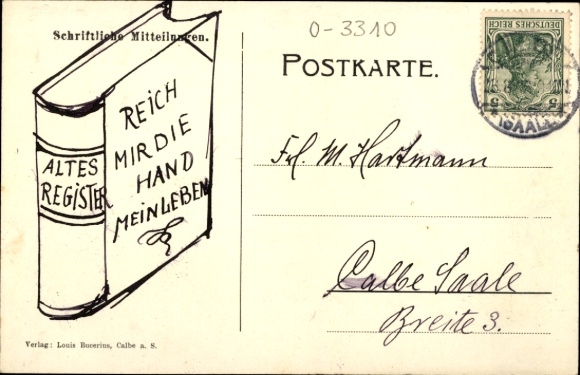 Schriftliche Mitteilungen.
ALTES
REGISTER
REICH
MIR DIE
HAND
MEIN LEBEN
Verlag: Louis Bucerius, Calbe a. S.
0-3310
POSTKARTE.
DEUTSCHES REICH
5 5
(SAALE)
Frl. M. Hartmann
Calbe Saale
Breite 3.